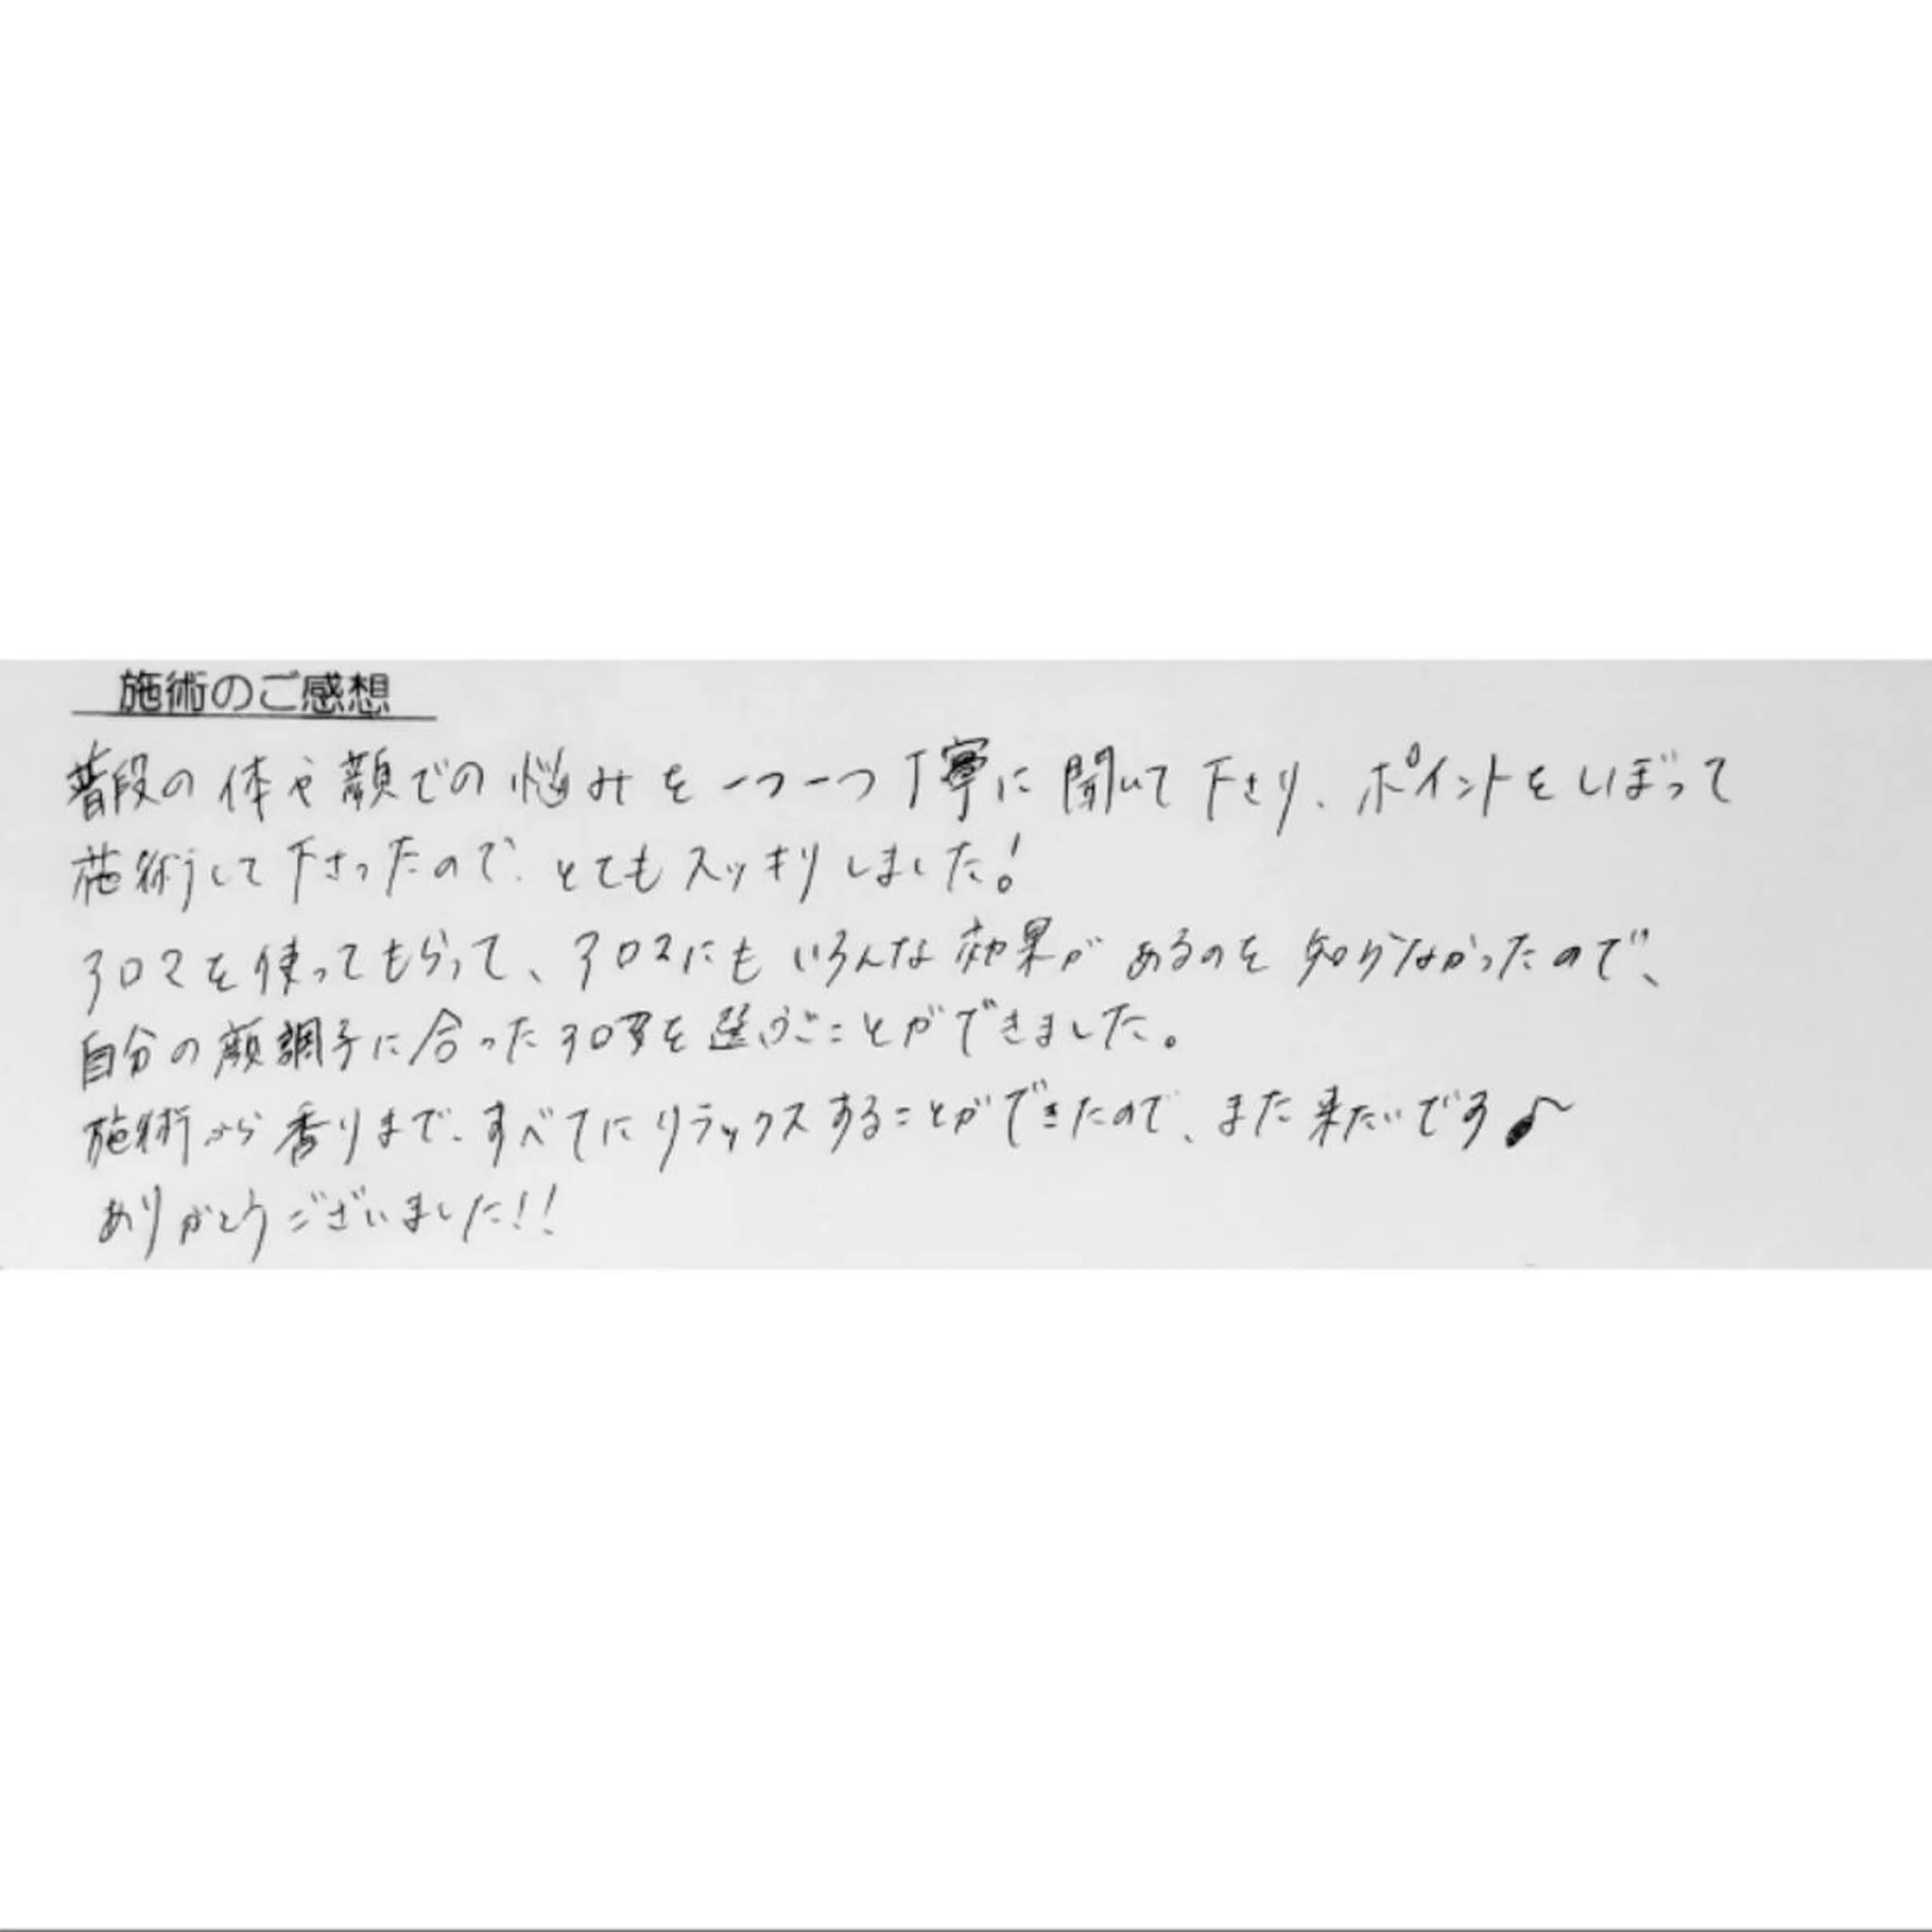 施術のご感想
普段の体や顔での悩みを一つ一つ丁寧に聞いて下さり、ポイントをしぼって
施術して下さったので、とてもスッキリしました!
アロマを使ってもらって、アロマにもいろんな効果があるのを知らなかったので、
自分の顔調子に合ったアロマを選ぶことができました。
施術から香りまで、すべてにリラックスすることができたので、また来たいです♪
ありがとうございました!!